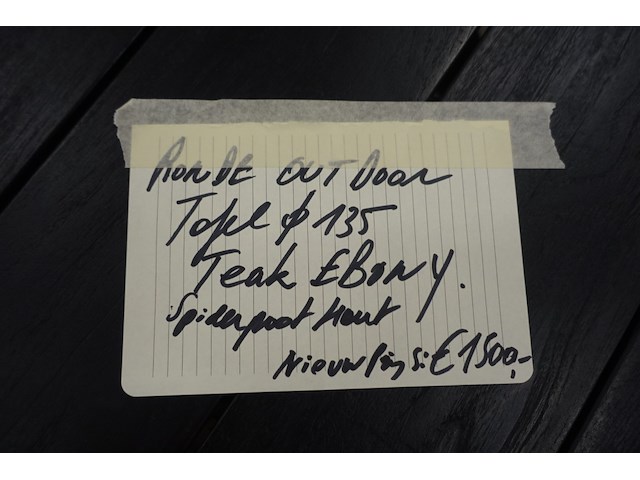 RONDE OUTDOOR
Tafel ø 135
Teak EBONY.
Spiderpoot Hout
Nieuwprijs: € 1500,-